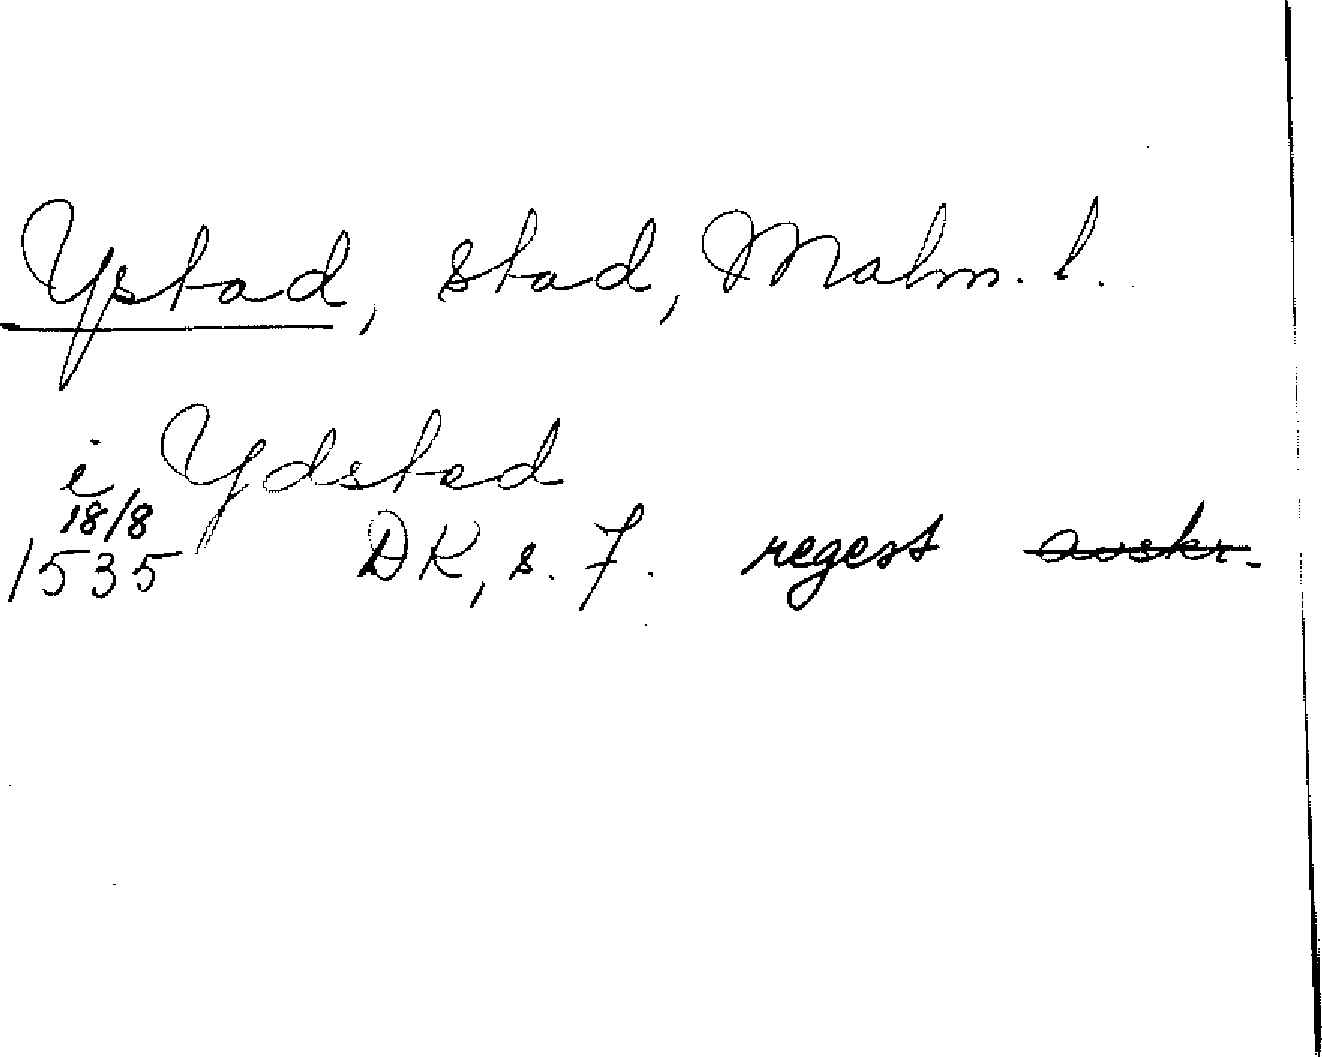 Ystad, stad, Malm. l.
i Ydsted
18/8
1535 DK, s. 7. regest avskr.